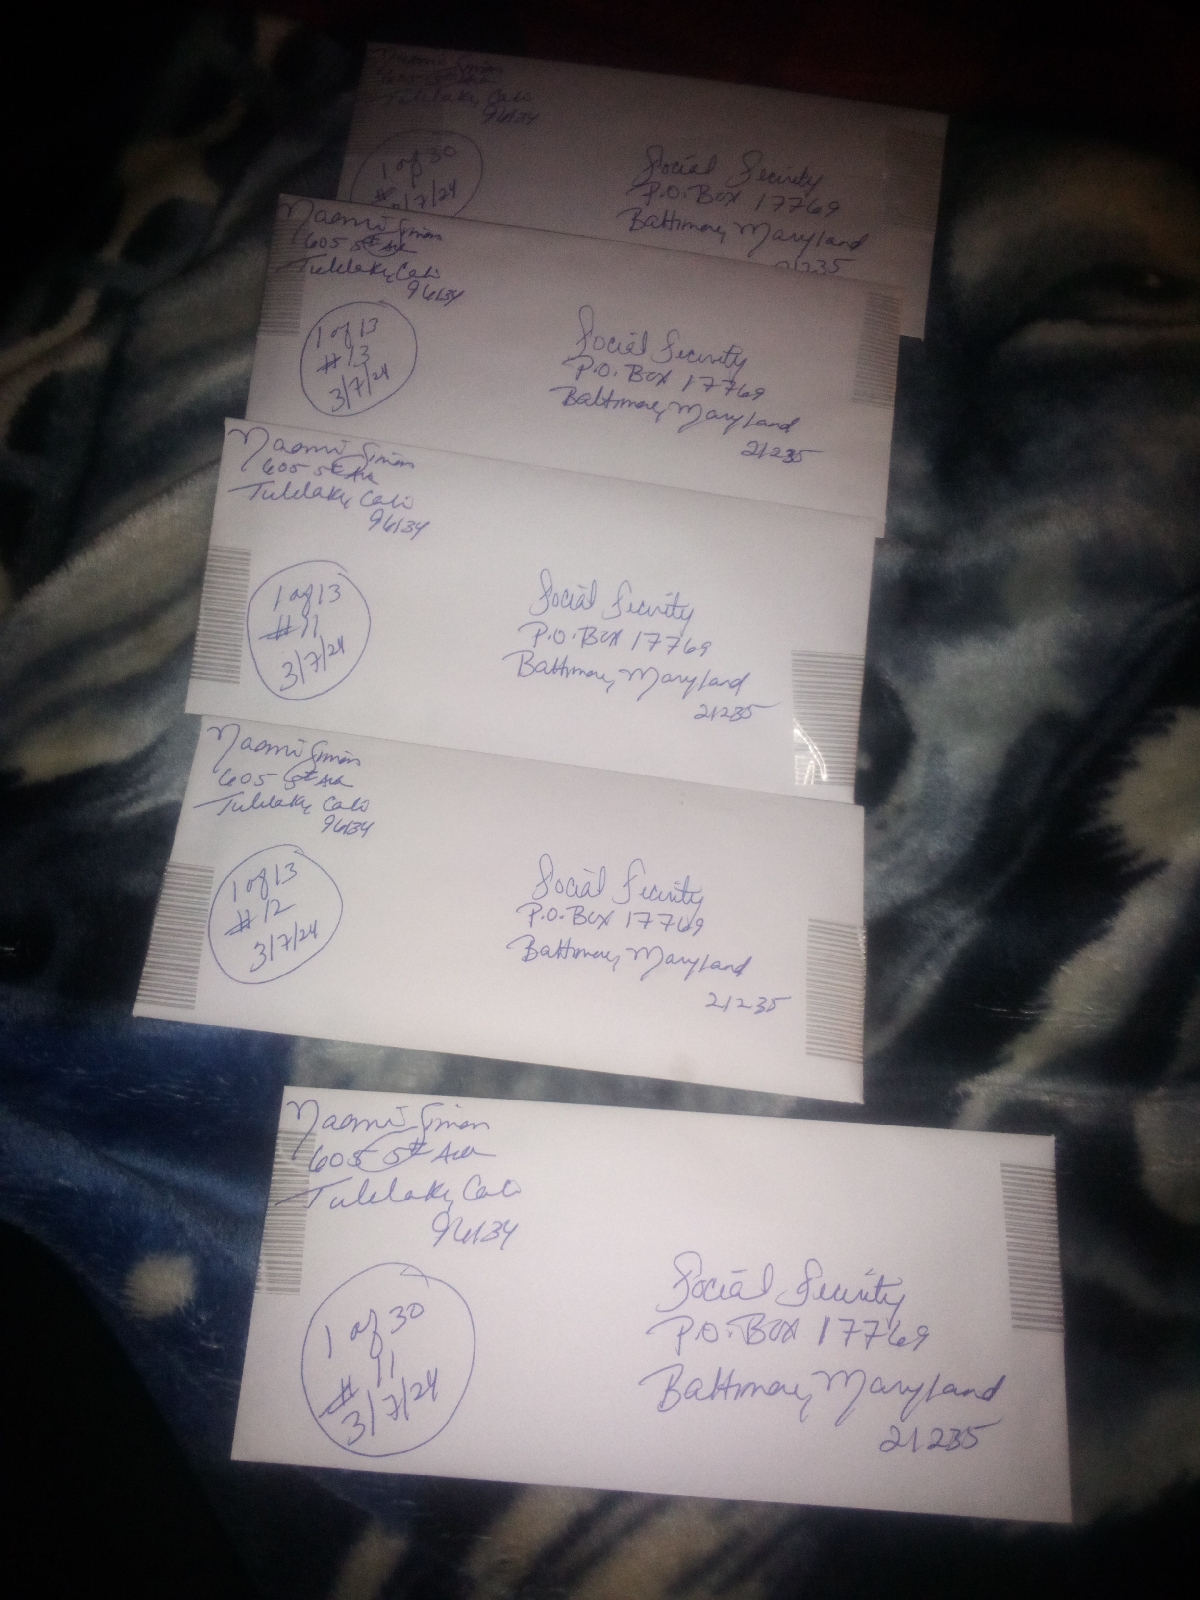 Naomi Simon
Tulelake, Cali
96134
1 of 30
/7/24
Social Security
P.O. Box 17769
Baltimore, Maryland
21235
Naomi Simon
605 5th Ave
Tulelake, Cali
96134
1 of 13
#13
3/7/24
Social Security
P.O. Box 17769
Baltimore, Maryland
21235
Naomi Simon
605 5th Ave
Tulelake, Cali
96134
1 of 13
#11
3/7/24
Social Security
P.O. Box 17769
Baltimore, Maryland
21235
Naomi Simon
605 5th Ave
Tulelake, Cali
96134
1 of 13
#12
3/7/24
Social Security
P.O. Box 17769
Baltimore, Maryland
21235
Naomi Simon
605 5th Ave
Tulelake, Cali
96134
1 of 30
# 11
3/7/24
Social Security
P.O. Box 17769
Baltimore, Maryland
21235